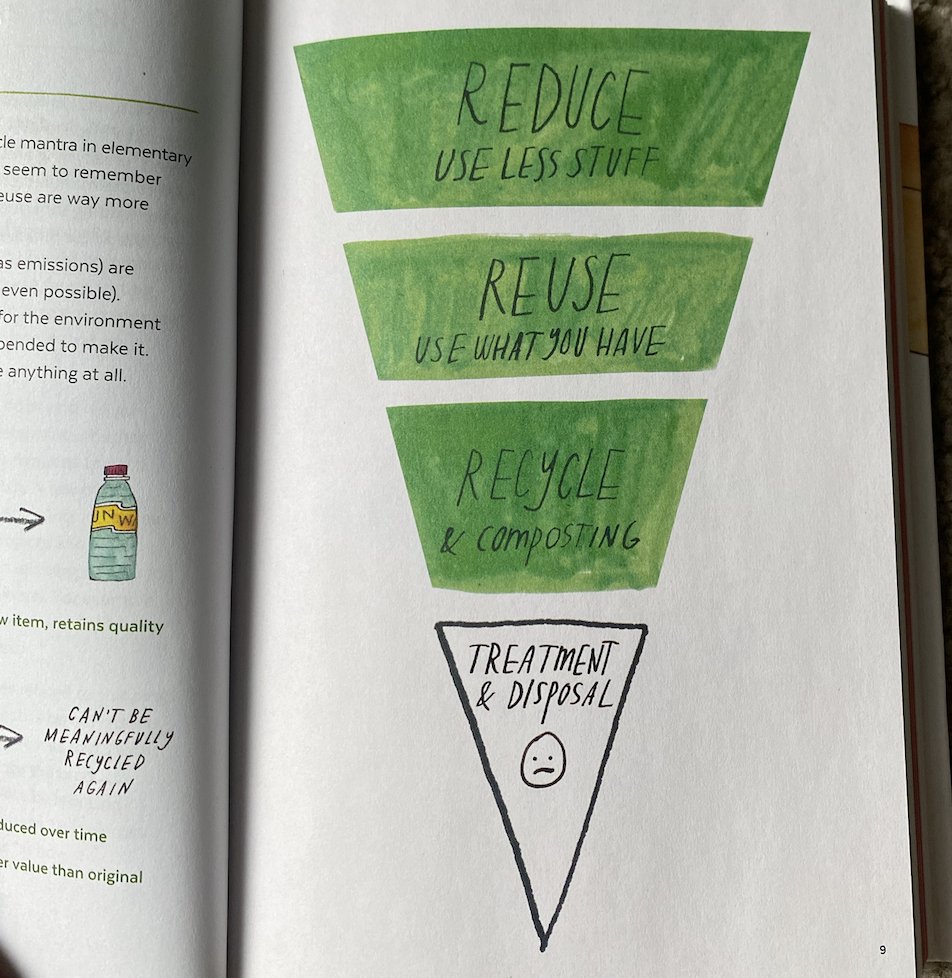 cle mantra in elementary
seem to remember
euse are way more
as emissions) are
even possible).
for the environment
pended to make it.
e anything at all.
UN WA
w item, retains quality
CAN'T BE
MEANINGFULLY
RECYCLED
AGAIN
duced over time
er value than original
REDUCE
USE LESS STUFF
REUSE
USE WHAT YOU HAVE
RECYCLE
& COMPOSTING
TREATMENT
& DISPOSAL
9